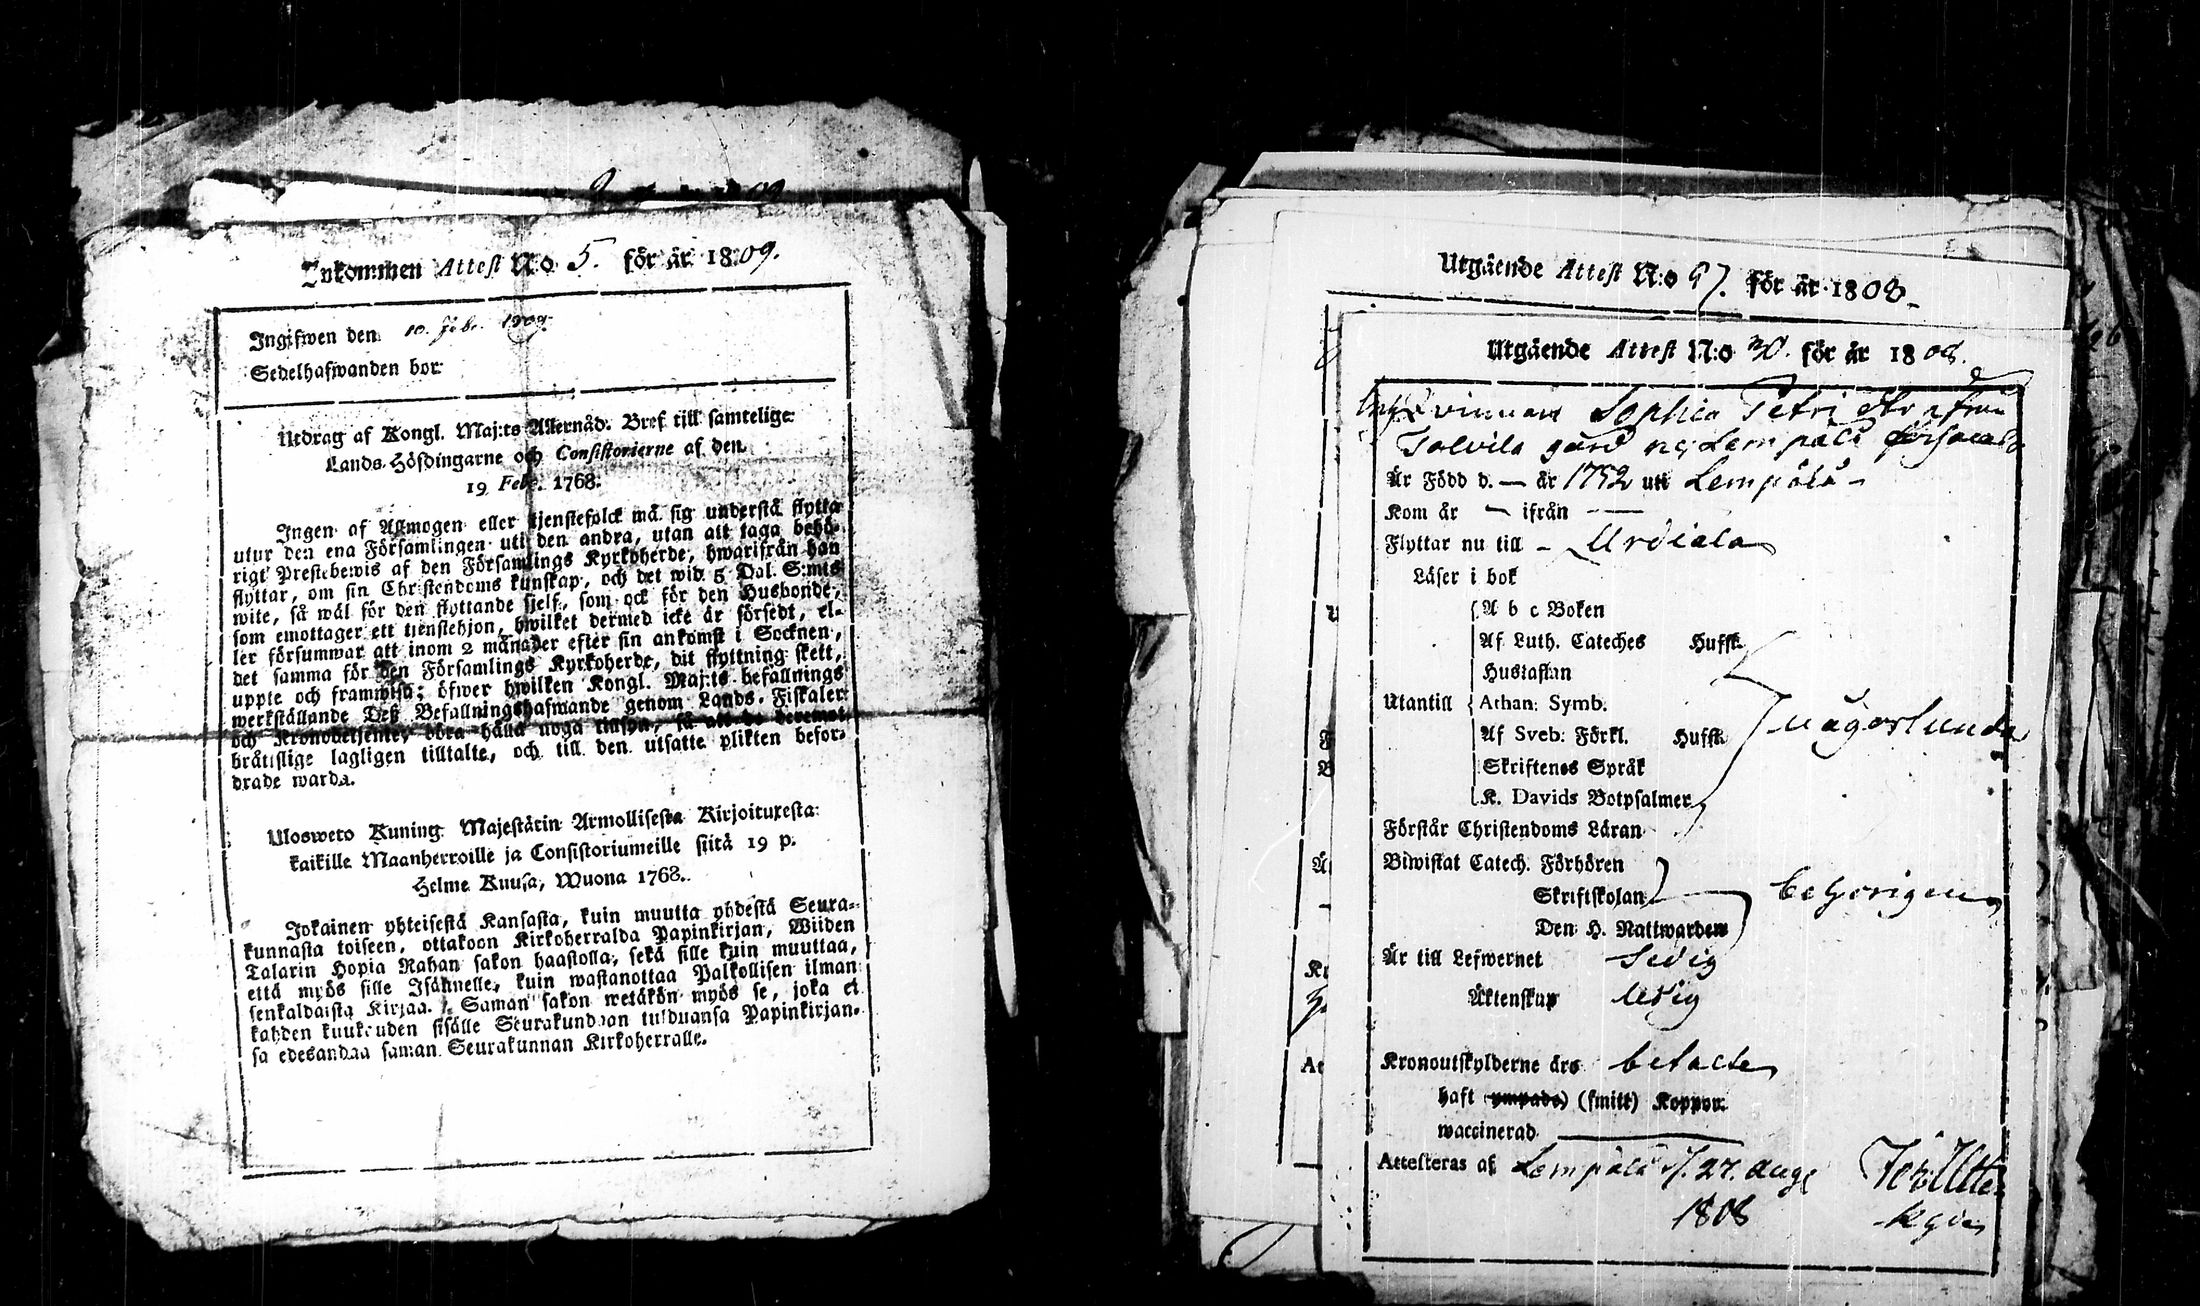 Inkommen Attest N:o 5. för år 1809.
Ingifwen den 10. Feb. 1809.
Sedelhafwanden bor
Utdrag af Kongl. Maj:ts Allernåd. Bref till samtelige
Lands-Höfdingarne och Consistorierne af den
19 Febr. 1768.
Ingen af Allmogen eller tjenstefolck må sig understå flytta
utur den ena Församlingen uti den andra, utan att taga behö-
rigt Prestebewis af den Församlings Kyrkoherde, hwarifrån han
flyttar, om sin Christendoms kunskap, och det wid 5 Dal. S:mts
wite, så wäl för den flyttande sjelf, som ock för den Husbonde,
som emottager ett tjenstehjon, hwilket dermed icke är försedt, el-
ler försummar att inom 2 månader efter sin ankomst i Socknen,
det samma för den Församlings Kyrkoherde, dit flyttning skett,
uppte och framwisa; öfwer hwilken Kongl. Maj:ts befallnings
werkställande Deß Befallningshafwande genom Lands-Fiskaler
och Kronobetjenter böra hålla noga tilsyn, så att de deremot
brättslige lagligen tilltalte, och till den utsatte plikten befor-
drade warda.
Ulosweto Kuning. Majestätin Armollisesta Kirjoituxesta
kaikille Maanherroille ja Consistoriumeille siitä 19 p.
Helme Kuusa, Wuona 1768.
Jokainen yhteisestä Kansasta, kuin muutta yhdestä Seura-
kunnasta toiseen, ottakoon Kirkoherralda Papinkirjan, Wiiden
Talarin Hopia Rahan sakon haastolla, sekä sille kuin muuttaa,
että myös sille Isännelle, kuin wastanottaa Palkollisen ilman
senkaldaista Kirjaa. Saman sakon wetäkön myös se, joka ei
kahden kuukauden sisälle Seurakundaan tulduansa Papinkirjan-
sa edesandaa saman Seurakunnan Kirkoherralle.
Utgående Attest N:o 97. för år 1808
Utgående Attest N:o 30. för år 1808.
Qvinnan Sophia Petri dtr ifrån
Talvila gård i Lempälä församl.
Är Född d. — år 1752 uti Lempälä
Kom år — ifrån —
Flyttar nu till - Urdiala
Läser i bok
A b c Boken
Af Luth. Cateches Hufst.
Hustaflan
Utantill Athan: Symb.
Af Sveb: Förkl. Hufst.
någorlunda
Skriftenes Språk
K. Davids Botpsalmer
Förstår Christendoms Läran
Biwistat Catech. Förhören
Skriftskolan
behörigen
Den H. Nattwarden
Är till Lefwernet Sedig
Äktenskap ledig
Kronoutskylderne äro betalte
haft (ympade) (smitt) Koppor
waccinerad —
Attesteras af Lempälä d. 27. Aug.
1808